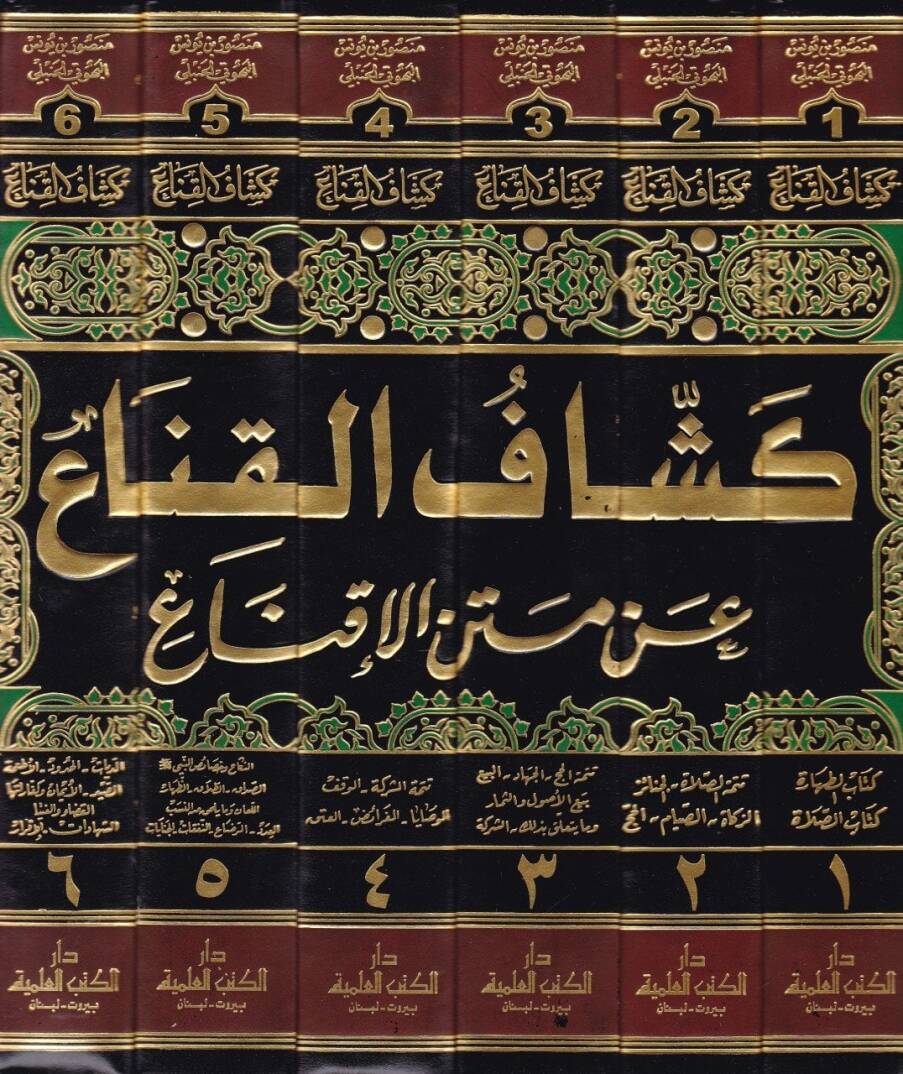 منصور بن يونس
البهوتي الحنبلي
1
كشاف القناع
منصور بن يونس
البهوتي الحنبلي
2
كشاف القناع
منصور بن يونس
البهوتي الحنبلي
3
كشاف القناع
منصور بن يونس
البهوتي الحنبلي
4
كشاف القناع
منصور بن يونس
البهوتي الحنبلي
5
كشاف القناع
منصور بن يونس
البهوتي الحنبلي
6
كشاف القناع
كَشَّافُ القِنَاعُ
عَن مَتن الإقنَاعِ
كتاب الطهارة
كتاب الصلاة
١
دار
الكتب العلمية
بيروت - لبنان
تتمة الصلاة - الجنائز
الزكاة - الصيام - الحج
٢
دار
الكتب العلمية
بيروت - لبنان
تتمة الحج - الجهاد - البيع
بيع الأصول والثمار
وما يتعلق بذلك - الشركة
٣
دار
الكتب العلمية
بيروت - لبنان
تتمة الشركة - الوقف
الوصايا - الفرائض - العتق
٤
دار
الكتب العلمية
بيروت - لبنان
النكاح وخصائص النبي ﷺ
الصداق - الطلاق - الظهار
اللعان وما يلحق من النسب
العدد - الرضاع - النفقات - الجنايات
٥
دار
الكتب العلمية
بيروت - لبنان
الديات - الحدود - الأطعمة
الصيد - الأيمان وكفارتها
القضاء والفتيا
الشهادات - الإقرار
٦
دار
الكتب العلمية
بيروت - لبنان